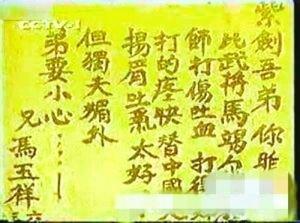 CCTV-1
紫劍吾弟 你昨
比武 馬竭尔
師打傷吐血 打得
打的 快 中國
揚眉吐氣 太好
但獨夫媚外
弟要小心……
兄馮玉祥